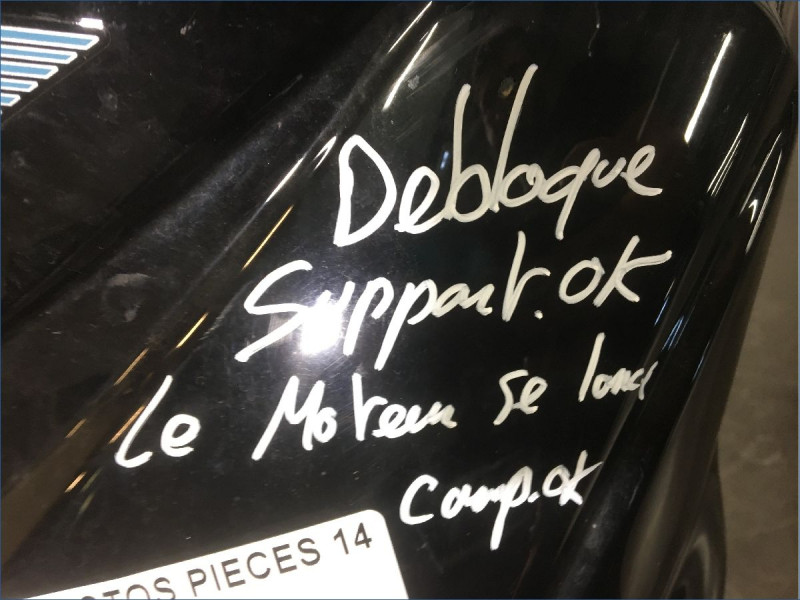 Debloque
Support.OK
Le Moteur se lance
Comp.OK
OTOS PIECES 14